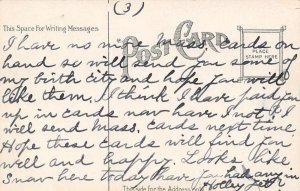 (3)
This Space For Writing Messages
POST CARD
PLACE STAMP HERE
I have no more Mass. cards on
hand so will send you some of
my birth city and hope you will
like them. I think I have paid you
up in cards now have I not? I
will send Mass. cards next time
Hope these cards will find you
well and happy. Looks like
snow here today have you had any in
This side for the Address